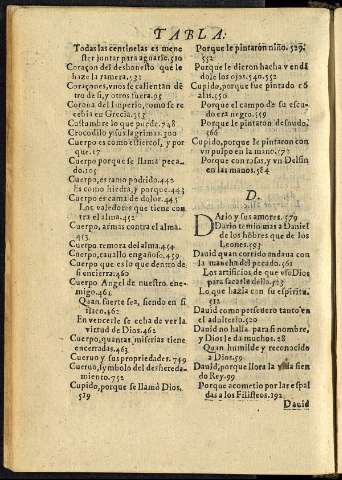 TABLA.
Todas las centinelas es mene
ster juntar para aguarle.510
Coraçon del deshonesto que le
haze la ramera.531
Coraçones, vnos se calientan dē
tro de si, y otros fuera.95
Corona del Imperio, como se re
cebia en Grecia.513
Costumbre lo que puede.748
Crocodilo y sus lagrimas.300
Cuerpo es como estiercol, y por
que.17
Cuerpo porque se llama peca-
do.105
Cuerpo, es ramo podrido.442
Es como hiedra, y porque.443
Cuerpo es cama de dolor.443
Los valedores que tiene con
tra el alma.452
Cuerpo, armas contra el alma.
453
Cuerpo remora del alma.454
Cuerpo, cauallo engañoso.459
Cuerpo que es lo que dentro de
si encierra.460
Cuerpo Angel de nuestro ene-
migo.461
Quan fuerte sea, siendo en si
flaco.462
En vencerle se echa de ver la
virtud de Dios.462
Cuerpo, quantas miserias tiene
encerradas.463
Cueruo y sus propriedades.749
Cueruo, symbolo del deshereda-
miento.752
Cupido, porque se llamó Dios.
529
Porque le pintaron niño.529.
552
Porque le dieron hacha y vendā
dole los ojos.540.552
Cupido, porque fue pintado cō
alas.550
Porque el campo de su escu-
do era negro.559
Porque le pintaron desnudo.
566
Cupido, porque le pintaron con
vn pulpo en la mano.572
Porque con rosas, y vn Delfin
en las manos.584
D.
Dario y sus amores.579
Dario temio mas a Daniel
de los hōbres que de los
Leones.593
Dauid quan corrido andaua con
la mancha del pecado.561
Los artificios de que vso Dios
para sacarle dello.523
Lo que hazia con su espiritu.
512
Dauid como perseuero tanto en
el adulterio.520
Dauid no halla para si nombre,
y Dios le da muchos.28
Quan humilde y reconocido
a Dios.59
Dauid, porque llora la vista sien
do Rey.99
Porque acometio por las espal
das a los Filisteos.192
Dauid